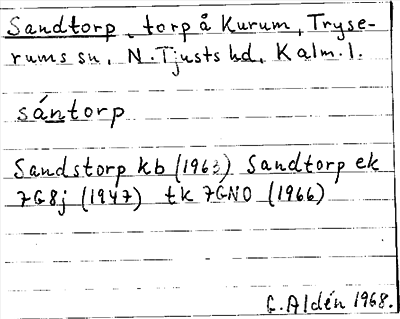 Sandtorp, torp å Kurum, Tryse-
rums sn, N. Tjusts hd, Kalm. l.
sántorp
Sandstorp kb (1963) Sandtorp ek
7G8j (1947) tk 7GNO (1966)
G. Aldén 1968.